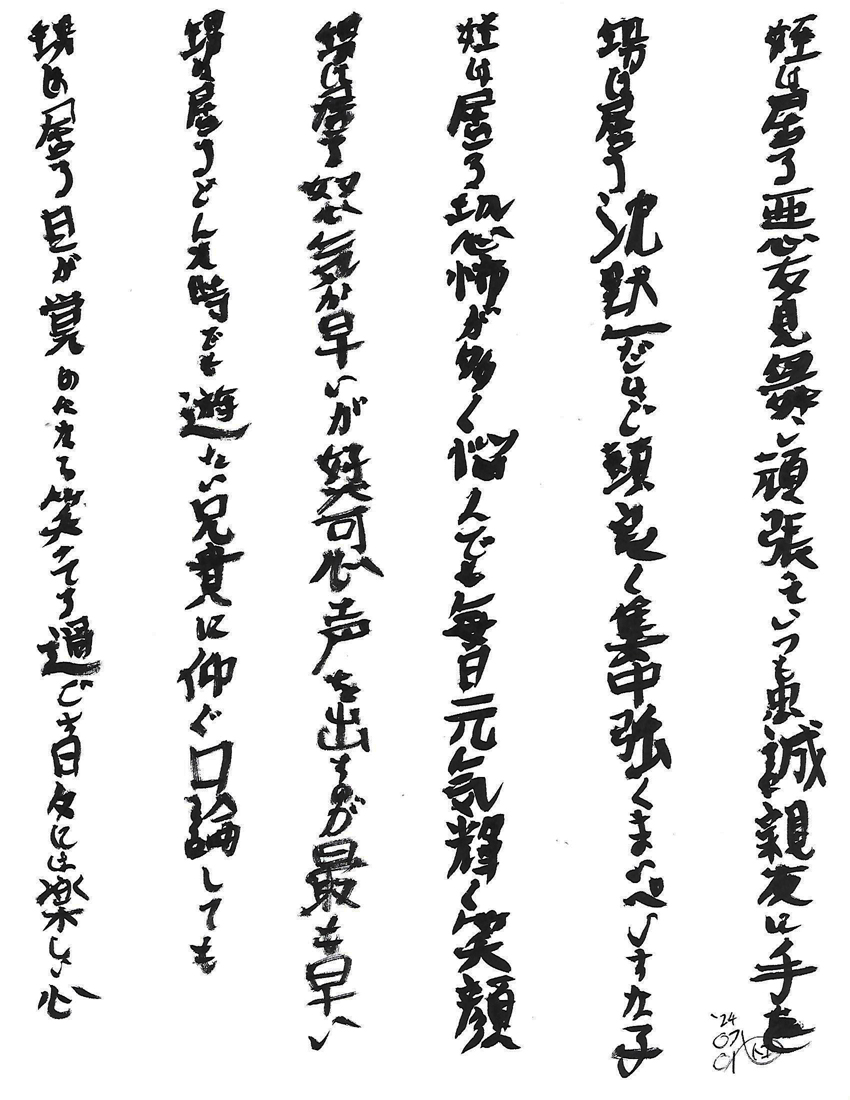 姪は居る悪友見舞い頑張っていつも忠誠親友に手を
甥は居る沈黙だけど頭良く集中強くま
姪は居る恐怖が多く悩んでも毎日元気輝く笑顔
甥は居る怒気が早いが好奇心声を出すのが最も早い
甥は居るどんな時でも遊たい兄貴に仰ぐ口論しても
甥は居る目が覚めたまる笑てる過ごす日々には楽しい心
'24
07
01